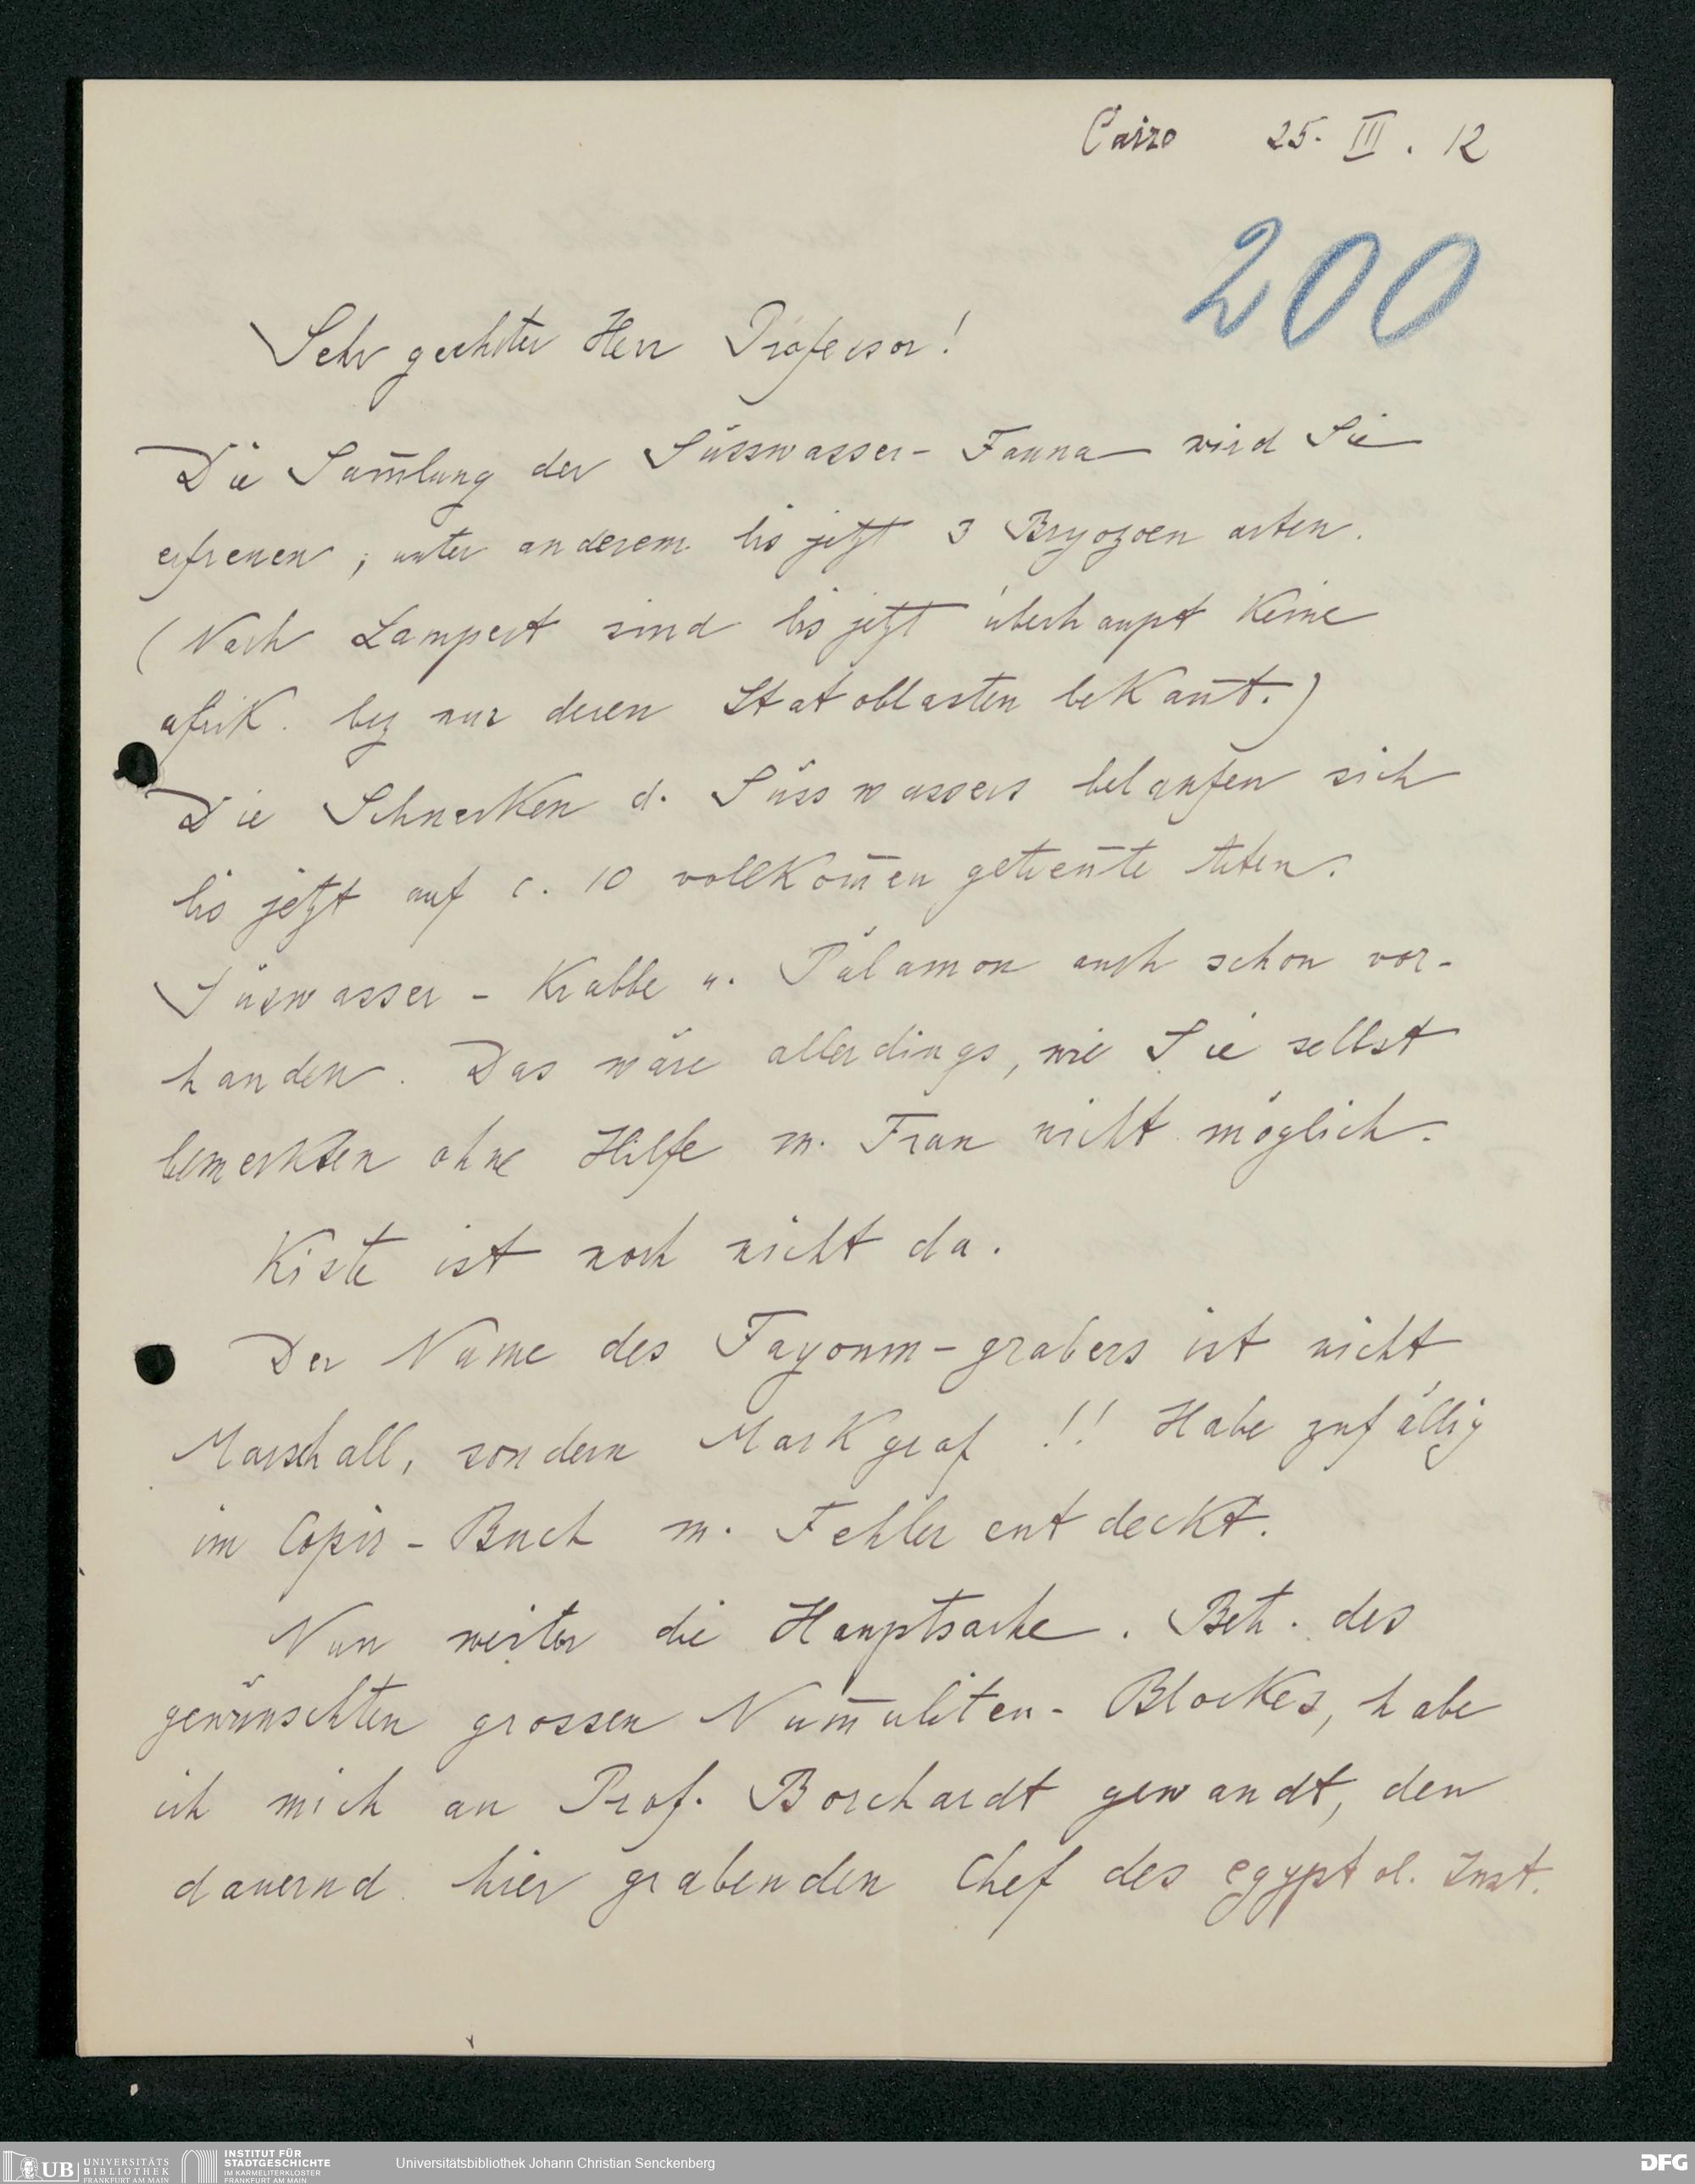 Cairo 25. III. 12
200
Sehr geehrter Herr Professor!
Die Sam̄lung der Süsswasser-Fauna wird Sie
erfreuen, unter anderem bis jetzt 3 Bryozoen arten.
(Nach Lampert sind bis jetzt überhaupt keine
afrik. bez nur deren Statoblasten bekan̄t.)
Die Schnecken d. Süsswassers belaufen sich
bis jetzt auf c. 10 vollkom̄en getren̄te Arten.
Süswasser-Krabbe u. Pälamon auch schon vor-
handen. Das wäre allerdings, wie Sie selbst
bemerkten ohne Hilfe m. Frau nicht möglich.
Kiste ist noch nicht da.
Der Name des Fayoum-grabers ist nicht
Marschall, sondern Markgraf!! Habe zufällig
im Copir-Buch m. Fehler entdeckt.
Nun weiter die Hauptsache. Betr. des
gewünschten grossen Num̄uliten-Blockes, habe
ich mich an Prof. Borchardt gewandt, den
dauernd hier grabenden Chef des egyptol. Inst.
UB UNIVERSITÄTS BIBLIOTHEK FRANKFURT AM MAIN
INSTITUT FÜR STADTGESCHICHTE IM KARMELITERKLOSTER FRANKFURT AM MAIN
Universitätsbibliothek Johann Christian Senckenberg
DFG